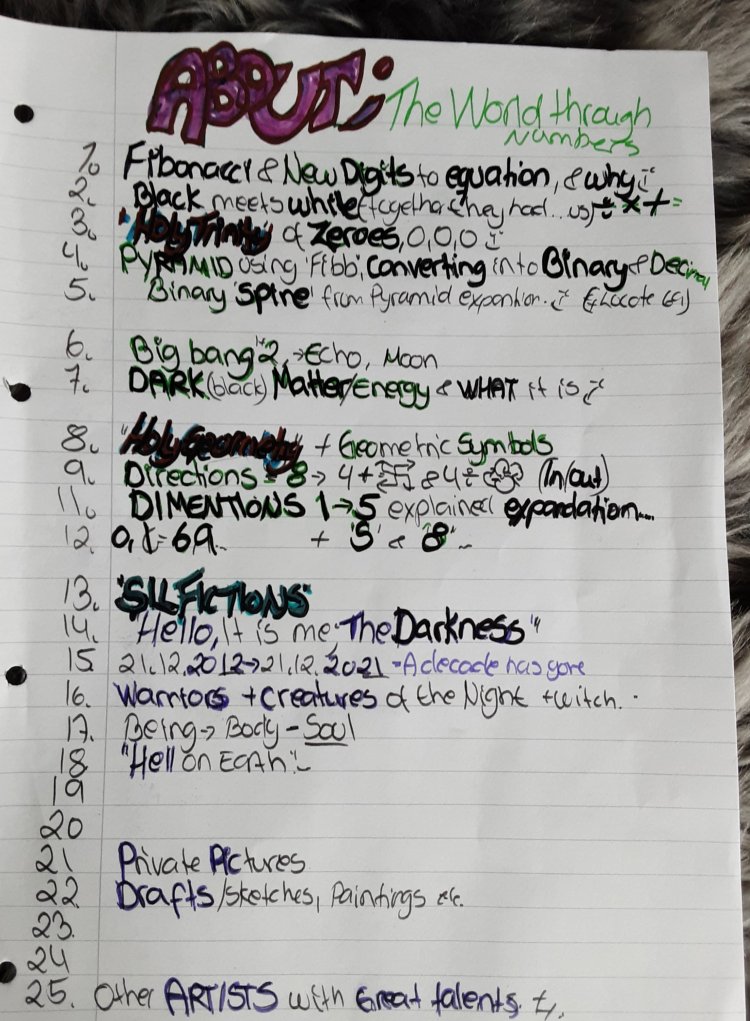 ABOUT: The World through
Numbers
1. Fibonacci & New Digits to equation, & why
2. Black meets white (together they had... us) ÷ × + =
3. "Holy Trinity" of Zeroes, 0, 0, 0
4. PYRAMID using 'Fibb', converting into Binary & Decimal
5. Binary 'Spine' from Pyramid expantion.
6. Big bang "2, → Echo, Moon
7. DARK (black) Matter/Energy & WHAT it is
8. "Holy Geometry" + Geometric Symbols
9. Directions = 8 → 4 + & 4 ÷ (In/out)
11. DIMENTIONS 1→5 explained expandation....
12. = 69.. + '5' & '8'..
13. "SILFICTIONS"
14. "Hello, It is me The Darkness"
15 21.12.2012→21.12.2021 - A decade has gone
16. Warriors + Creatures of the Night + witch.
17. Being → Body - Soul
18 "Hell on Earth"
19
20
21 Private Pictures
22 Drafts/sketches, Paintings etc.
23.
24
25. Other ARTISTS with Great talents.